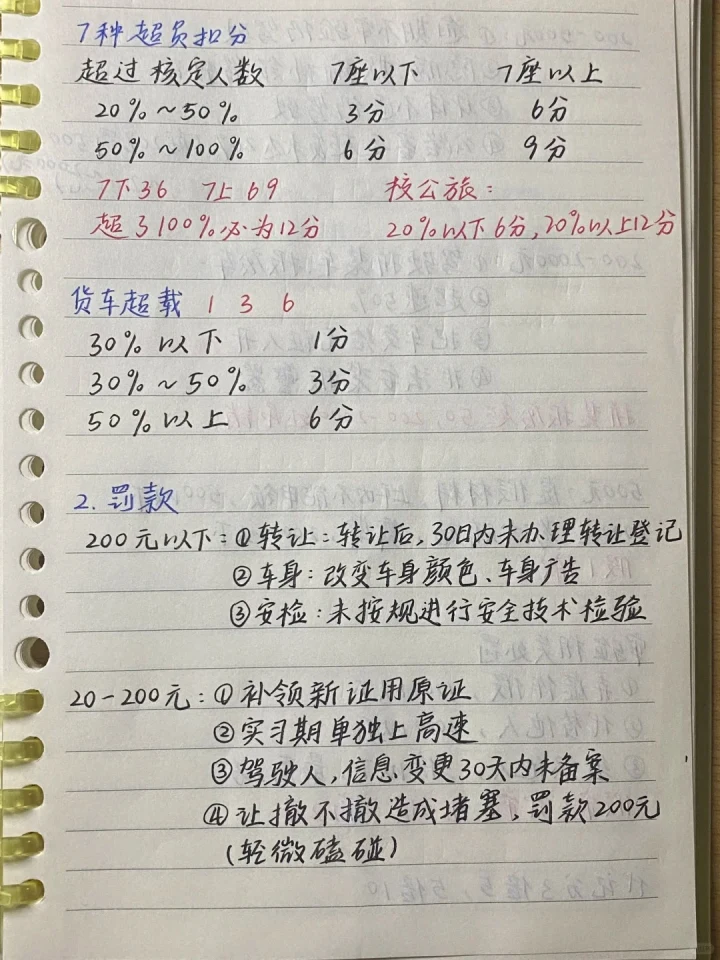 7种超员扣分
超过核定人数 7座以下 7座以上
20%~50% 3分 6分
50%~100% 6分 9分
7下36 7上69 校公旅:
超了100%必为12分 20%以下6分,20%以上12分
货车超载 1 3 6
30%以下 1分
30%~50% 3分
50%以上 6分
2.罚款
200元以下:①转让:转让后,30日内未办理转让登记
②车身:改变车身颜色、车身广告
③安检:未按规进行安全技术检验
20-200元:①补领新证用原证
②实习期单独上高速
③驾驶人,信息变更30天内未备案
④让撤不撤造成堵塞,罚款200元
(轻微磕碰)